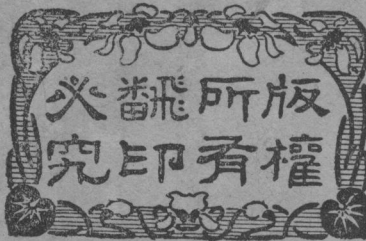 版權
所有
飜印
必究